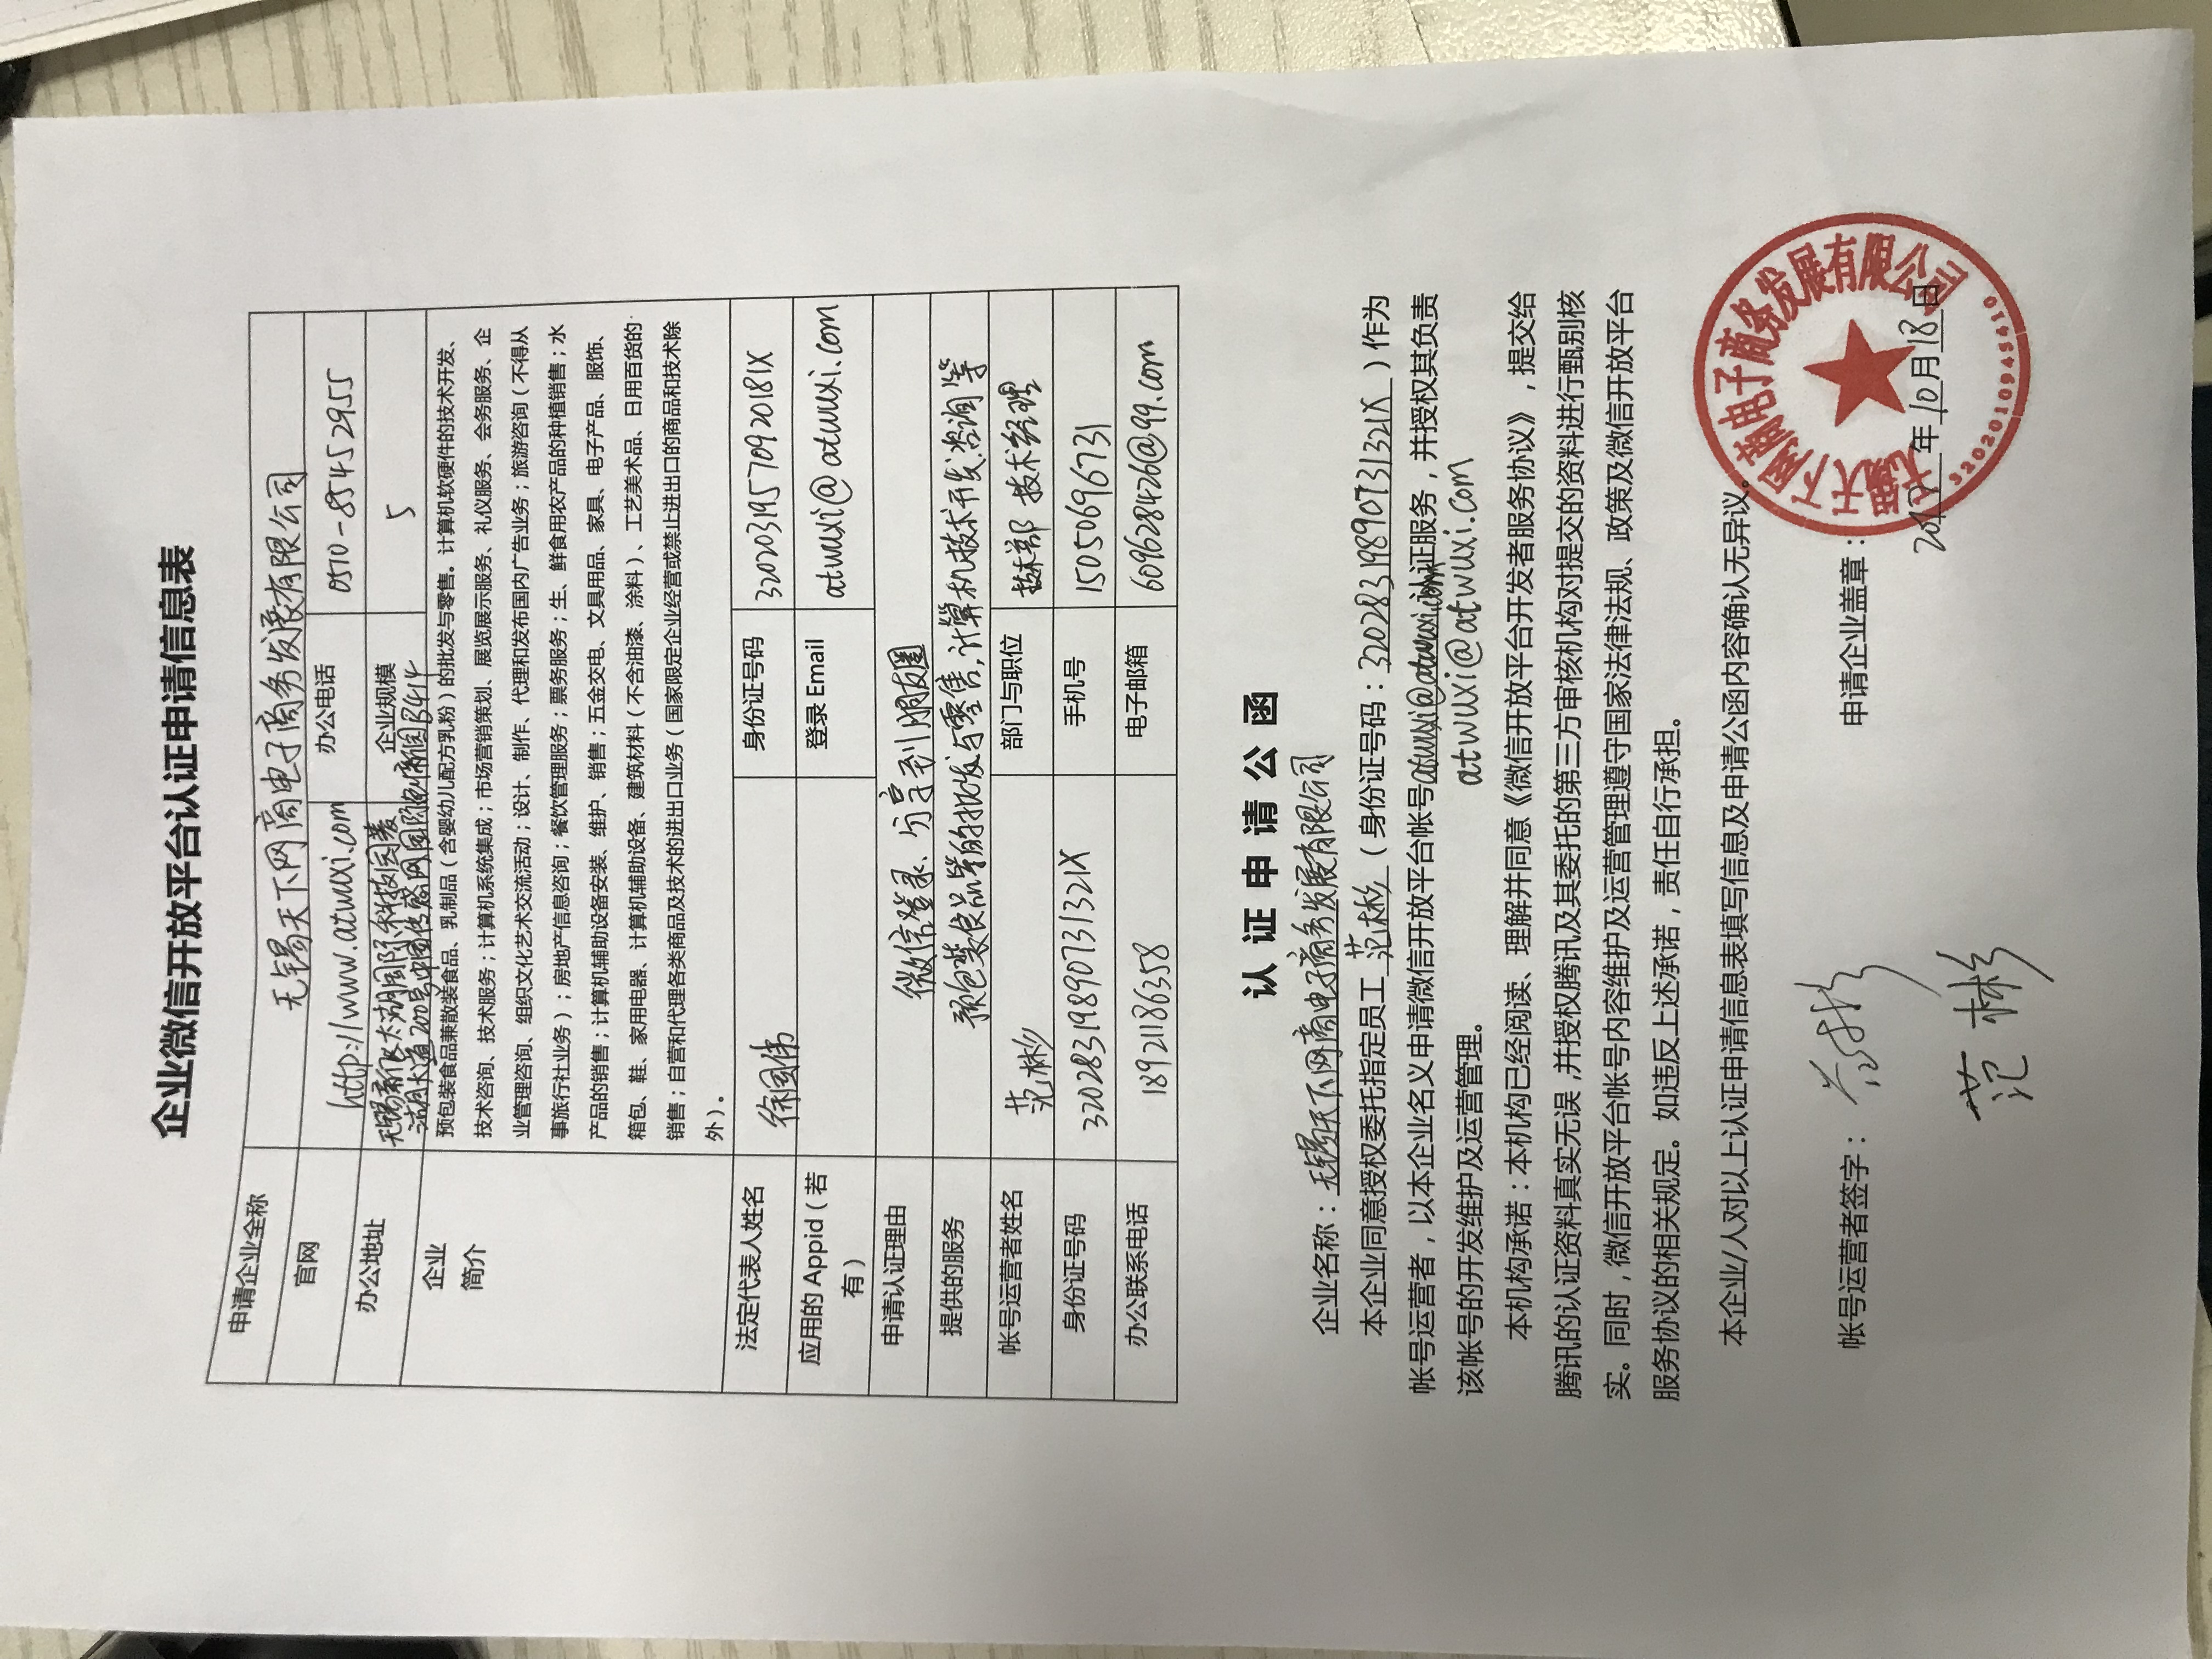 企业微信开放平台认证申请信息表
申请企业全称 无锡天下网商电子商务发展有限公司
官网 http://www.atwuxi.com 办公电话 0510-85452955
办公地址 无锡新区太湖国际科技园菱
湖大道200号中国传感网国际创新园B414 企业规模 5
企业
简介
预包装食品兼散装食品、乳制品（含婴幼儿配方乳粉）的批发与零售。计算机软硬件的技术开发、
技术咨询、技术服务；计算机系统集成；市场营销策划、展览展示服务、礼仪服务、会务服务、企
业管理咨询、组织文化艺术交流活动；设计、制作、代理和发布国内广告业务；旅游咨询（不得从
事旅行社业务）；房地产信息咨询；餐饮管理服务；票务服务；生、鲜食用农产品的种植销售；水
产品的销售；计算机辅助设备安装、维护、销售；五金交电、文具用品、家具、电子产品、服饰、
箱包、鞋、家用电器、计算机辅助设备、建筑材料（不含油漆、涂料）、工艺美术品、日用百货的
销售；自营和代理各类商品及技术的进出口业务（国家限定企业经营或禁止进出口的商品和技术除
外）。
法定代表人姓名 徐国伟 身份证号码 32020319570920181X
应用的 Appid（若
有） 登录 Email atwuxi@atwuxi.com
申请认证理由 微信登录、分享到朋友圈
提供的服务 预包装食品等的批发与零售,计算机技术开发、咨询等
帐号运营者姓名 范彬 部门与职位 技术部 技术经理
身份证号码 32028319890731321X 手机号 15050696731
办公联系电话 18921186358 电子邮箱 609628426@qq.com
认证申请公函
企业名称：无锡天下网商电子商务发展有限公司
本企业同意授权委托指定员工 范彬 （身份证号码：32028319890731321X）作为
帐号运营者，以本企业名义申请微信开放平台帐号atwuxi@atwuxi.com认证服务，并授权其负责
该帐号的开发维护及运营管理。 atwuxi@atwuxi.com
本机构承诺：本机构已经阅读、理解并同意《微信开放平台开发者服务协议》，提交给
腾讯的认证资料真实无误，并授权腾讯及其委托的第三方审核机构对提交的资料进行甄别核
实。同时，微信开放平台帐号内容维护及运营管理遵守国家法律法规、政策及微信开放平台
服务协议的相关规定。如违反上述承诺，责任自行承担。
本企业/人对以上认证申请信息表填写信息及申请公函内容确认无异议。
无锡天下网商电子商务发展有限公司
帐号运营者签字： 范彬 申请企业盖章：
2017年10月18日
范彬
3202010945410